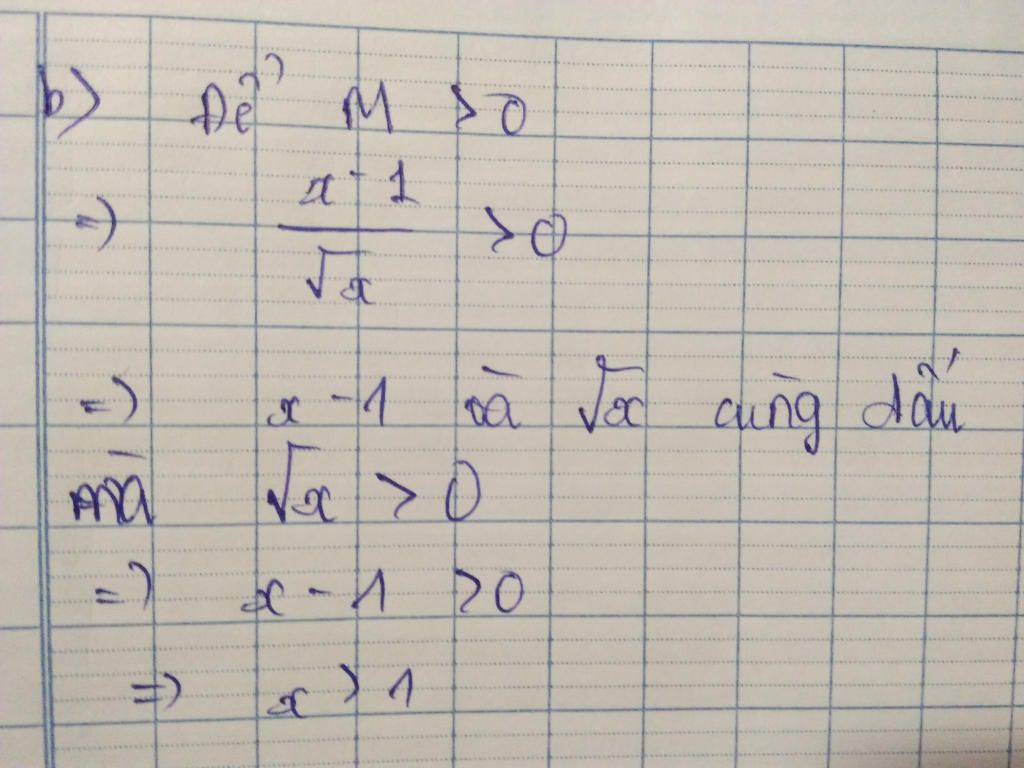 b) Để M > 0
=> x - 1 / √x > 0
=> x - 1 và √x cùng dấu
mà √x > 0
=> x - 1 > 0
=> x > 1